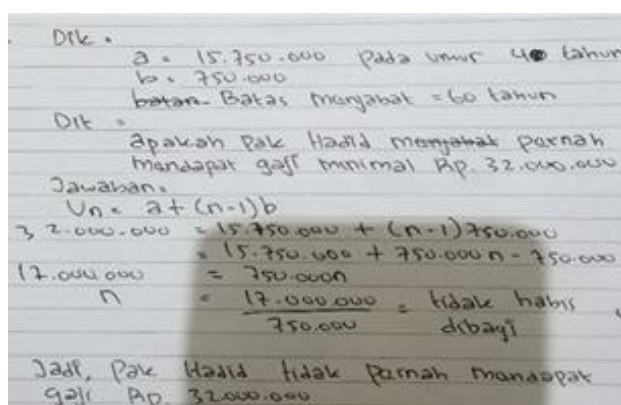 Dik :
a = 15.750.000 pada umur 40 tahun
b = 750.000
batan Batas menjabat = 60 tahun
Dit :
apakah Pak Hadid menjabat pernah
mendapat gaji minimal Rp. 32.000.000
Jawaban :
Un = a + (n-1)b
32.000.000 = 15.750.000 + (n-1) 750.000
= 15.750.000 + 750.000 n - 750.000
17.000.000 = 750.000n
n = 17.000.000 / 750.000 = tidak habis dibagi
Jadi, Pak Hadid tidak pernah mendapat
gaji Rp. 32.000.000